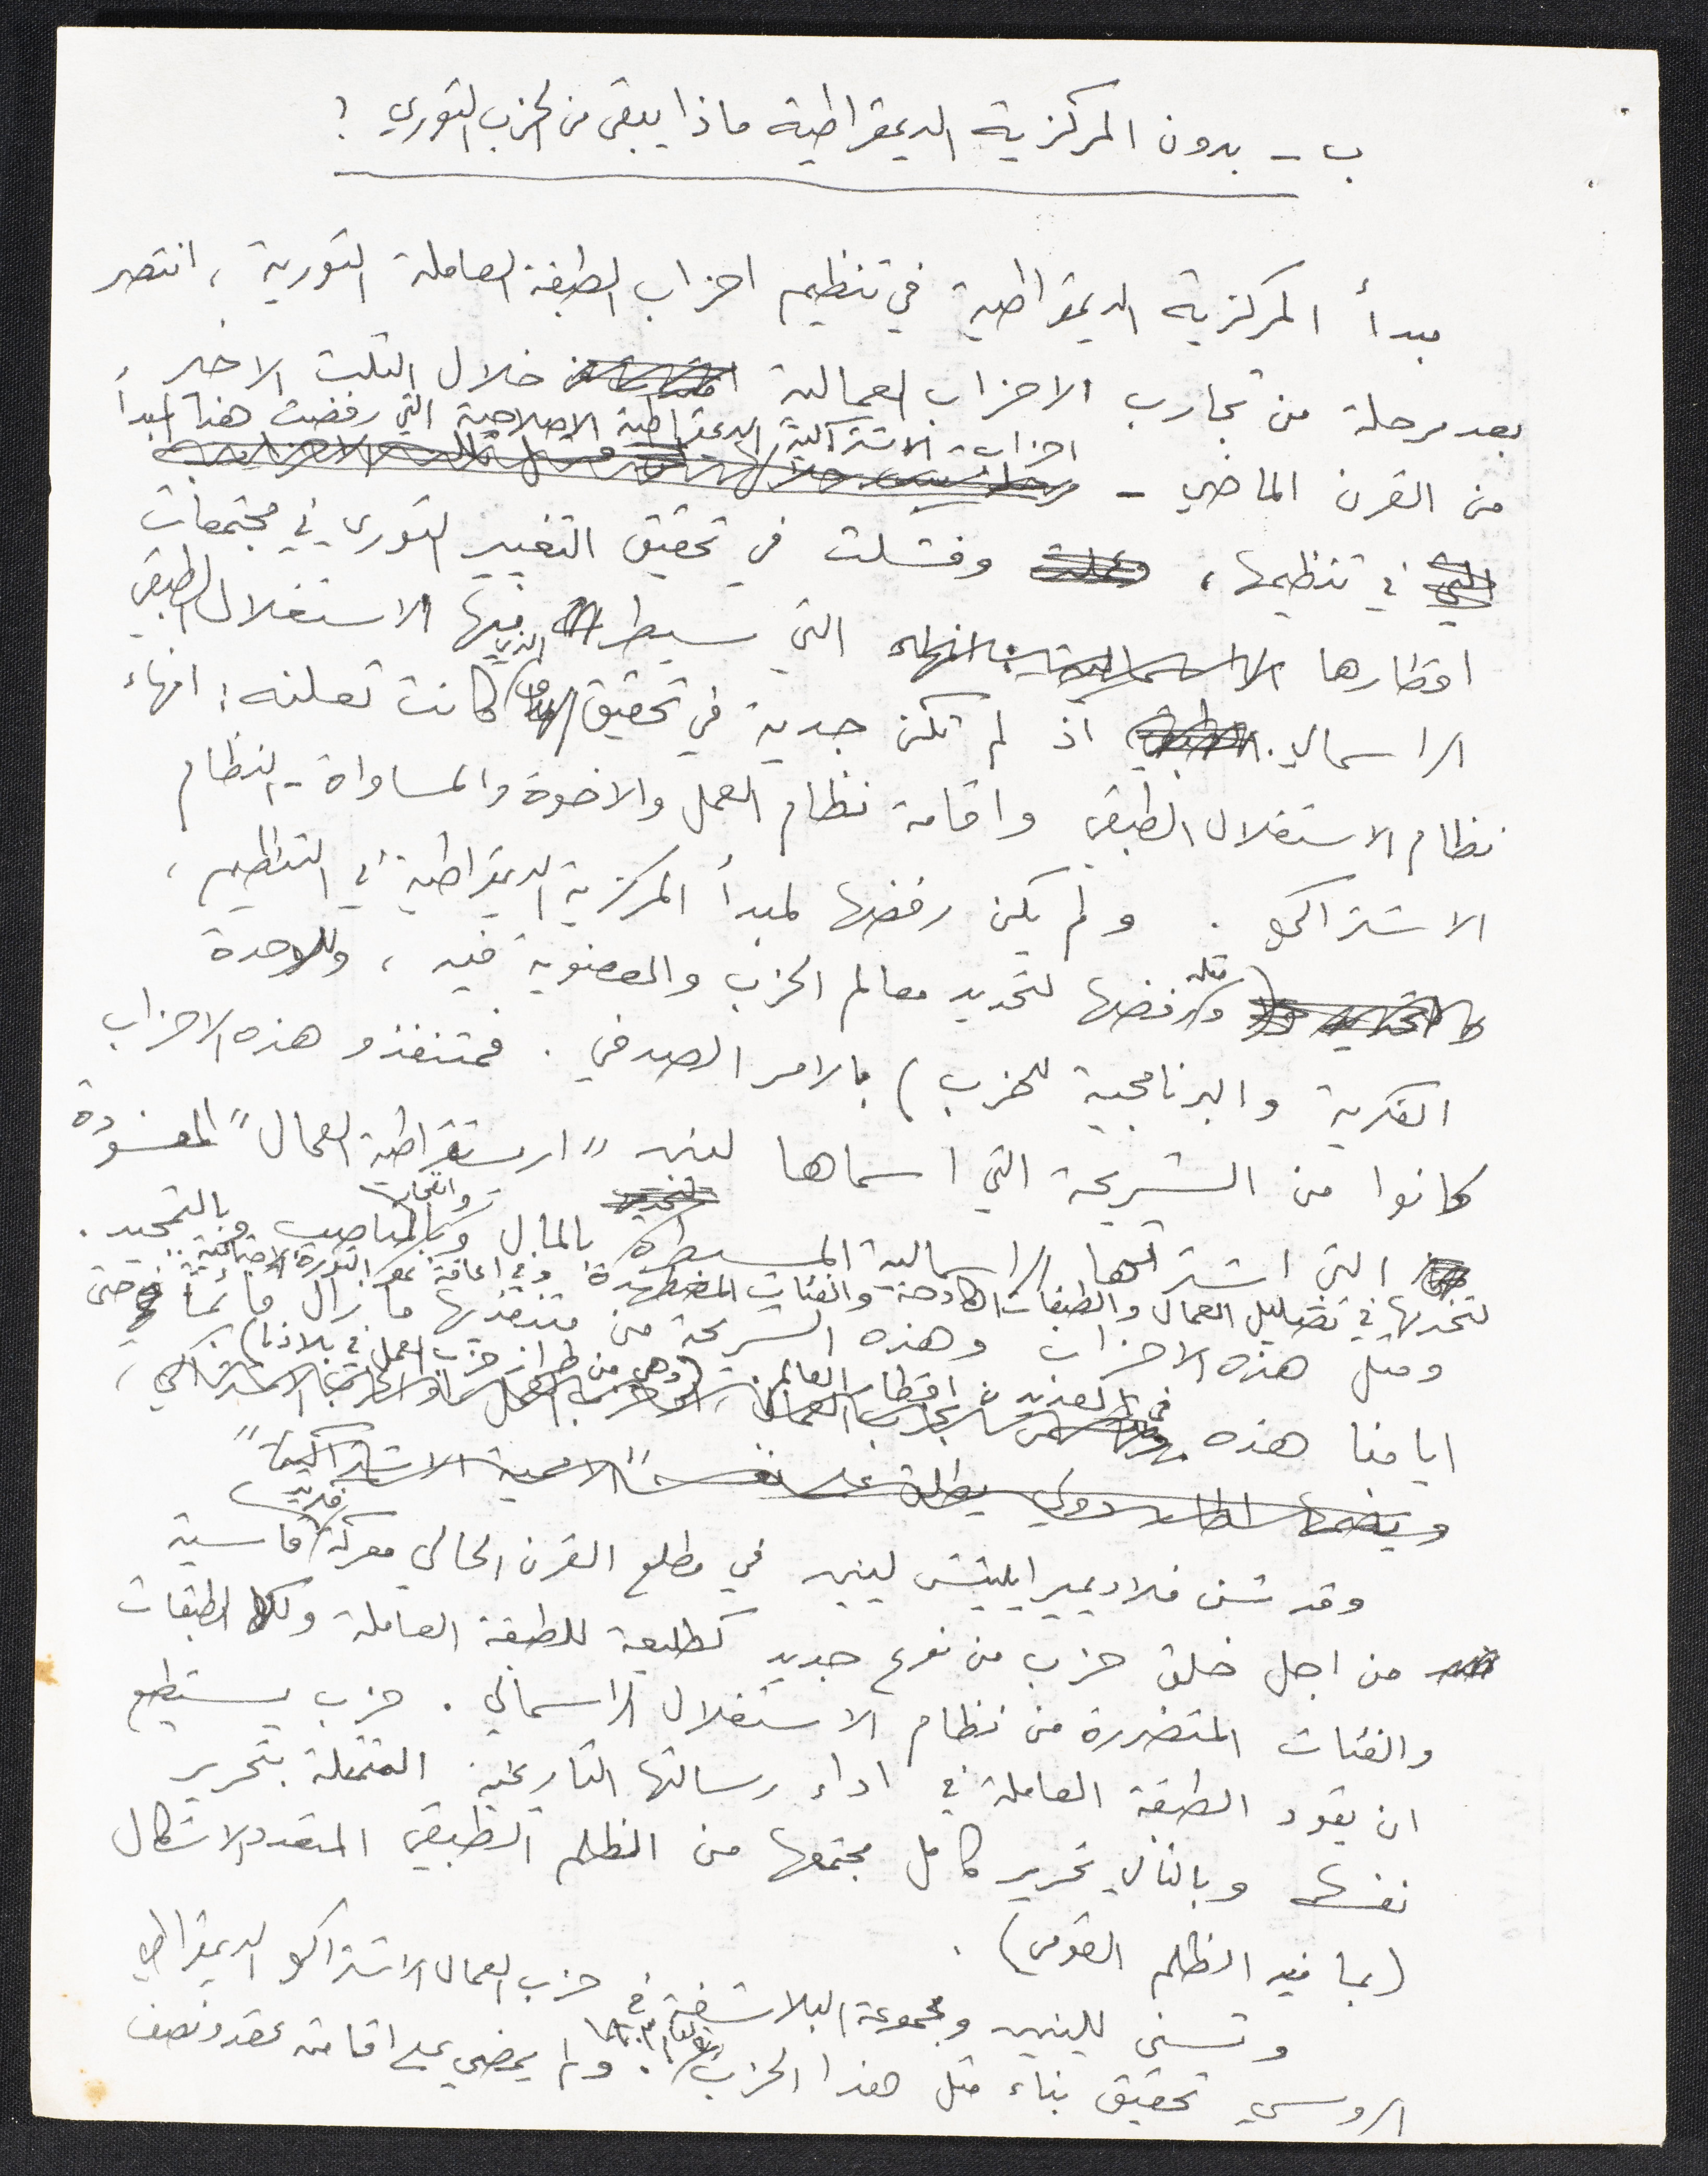 ب - بدون المركزية الديمقراطية ماذا يبقى من الحزب الثوري ؟
مبدأ المركزية الديمقراطية في تنظيم احزاب الطبقة العاملة الثورية ، انتصر
بعد مرحلة من تجارب الاحزاب العمالية خلال الثلث الاخير
من القرن الماضي - احزاب الاشتراكية الديمقراطية الاصلاحية التي رفضت هذا المبدأ
في تنظيمها ، وفشلت في تحقيق التغيير الثوري في مجتمعات
اقطارها التي سيطر فيها الاستغلال الطبقي
الراسمالي . اذ لم تكن جدية في تحقيق الهدف الذي كانت تعلنه : انهاء
نظام الاستغلال الطبقي واقامة نظام العمل والاخوة والمساواة - النظام
الاشتراكي . ولم يكن رفضها لمبدأ المركزية الديمقراطية في التنظيم ،
( ومثله رفضها لتحديد معالم الحزب والعضوية فيه ، وللوحدة
الفكرية والبرنامجية للحزب ) بالامر الصدفي . فمتنفذو هذه الاحزاب
كانوا من الشريحة التي اسماها لينين " ارستقراطية العمال " المفسودة
التي اشترتها الراسمالية المسيطرة بالمال وبالمناصب والجاه وبالتمجيد .
لتخدمها في تضليل العمال والطبقات الكادحة والفئات المضطهدة ، وفي اعاقة نمو الثورة الاجتماعية ..
ومثل هذه الاحزاب وهذه الشريحة من متنفذيها ما زال قائماً حتى
ايامنا هذه في العديد من اقطار العالم . ( وهي من طراز حزب العمل في بلادنا )
وقد شن فلاديمير ايليتش لينين في مطلع القرن الحالي معركة فكرية قاسية
من اجل خلق حزب من نوع جديد كطليعة للطبقة العاملة ولكل الطبقات
والفئات المتضررة من نظام الاستغلال الراسمالي . حزب يستطيع
ان يقود الطبقة العاملة في اداء رسالتها التاريخية المتمثلة بتحرير
نفسها وبالتالي تحرير كامل مجتمعها من الظلم الطبقي المتعدد الاشكال
( بما فيه الظلم القومي ) .
وتسنى للينين ومجموعة البلاشفة في حزب العمال الاشتراكي الديمقراطي
الروسي تحقيق بناء مثل هذا الحزب . ولم يمضي على اقامته عقد ونصف